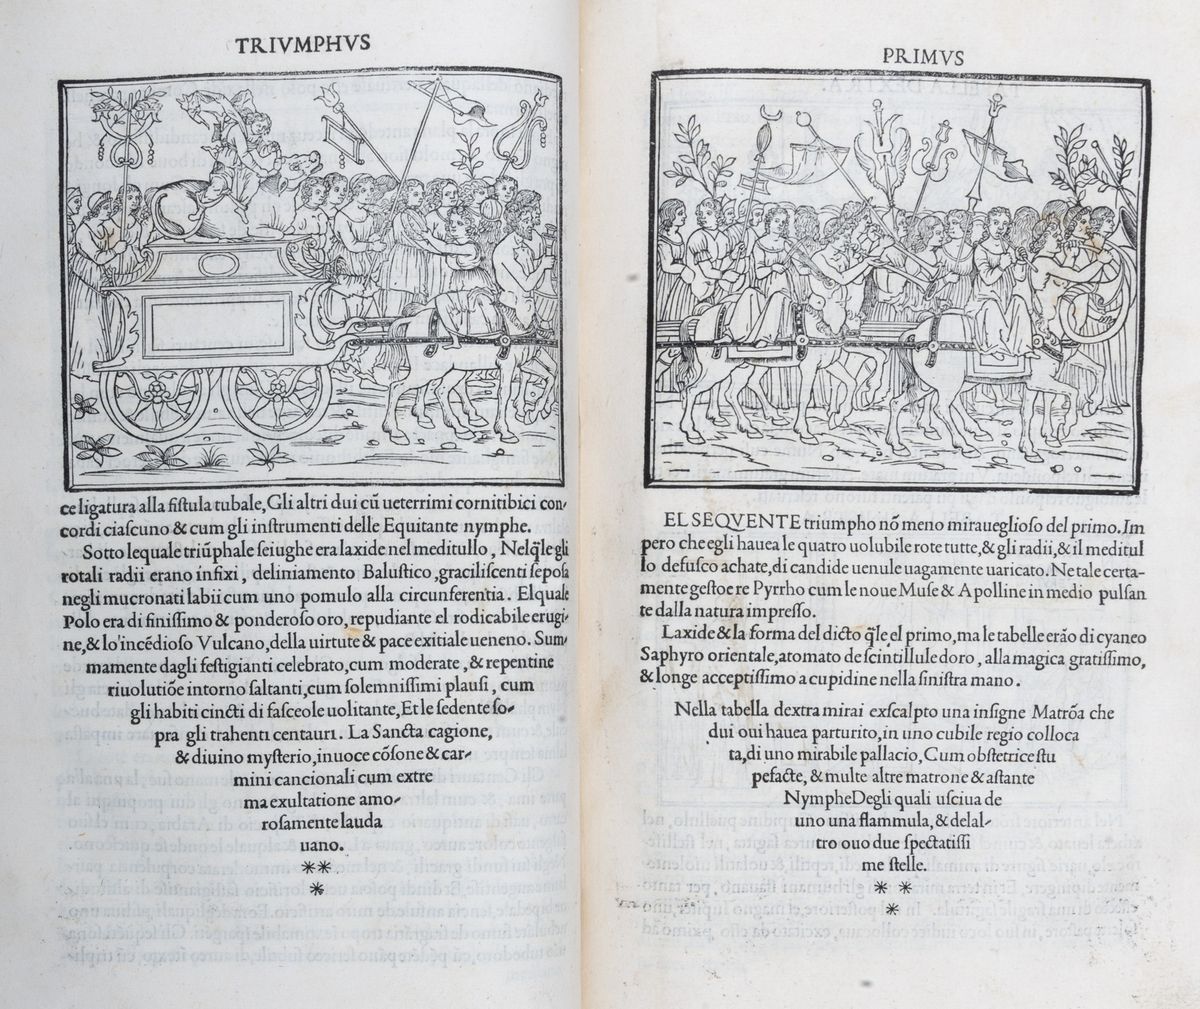 TRIVMPHVS
ce ligatura alla fistula tubale, Gli altri dui cũ ueterrimi cornitibici con-
cordi ciascuno & cum gli instrumenti delle Equitante nymphe.
Sotto lequale triũphale seiughe era laxide nel meditullo, Nelq̃le gli
rotali radii erano infixi, deliniamento Balustico, graciliscenti seposa
negli mucronati labii cum uno pomulo alla circunferentia. Elquale
Polo era di finissimo & ponderoso oro, repudiante el rodicabile erugi-
ne, & lo'incẽdioso Vulcano, della uirtute & pace exitiale ueneno. Sum-
mamente dagli festigianti celebrato, cum moderate, & repentine
riuolutiõe intorno saltanti, cum solemnissimi plausi, cum
gli habiti cincti di fasceole uolitante, Et le sedente so-
pra gli trahenti centauri. La Sancta cagione,
& diuino mysterio, inuoce cõsone & car-
mini cancionali cum extre
ma exultatione amo-
rosamente lauda
uano.
***
PRIMVS
EL SEQVENTE triumpho nõ meno miraueglioso del primo. Im
pero che egli hauea le quatro uolubile rote tutte, & gli radii, & il meditul
lo defusco achate, di candide uenule uagamente uaricato. Netale certa-
mente gestoe re Pyrrho cum le noue Muse & Apolline in medio pulsan
te dalla natura impresso.
Laxide & la forma del dicto q̃le el primo, ma le tabelle erão di cyaneo
Saphyro orientale, atomato de scintillule doro, alla magica gratissimo,
& longe acceptissimo a cupidine nella sinistra mano.
Nella tabella dextra mirai exscalpto una insigne Matrõa che
dui oui hauea parturito, in uno cubile regio colloca
ta, di uno mirabile pallacio, Cum obstetrice stu
pefacte, & multe altre matrone & astante
Nymphe Degli quali usciua de
uno una flammula, & delal-
tro ouo due spectatissi
me stelle.
***